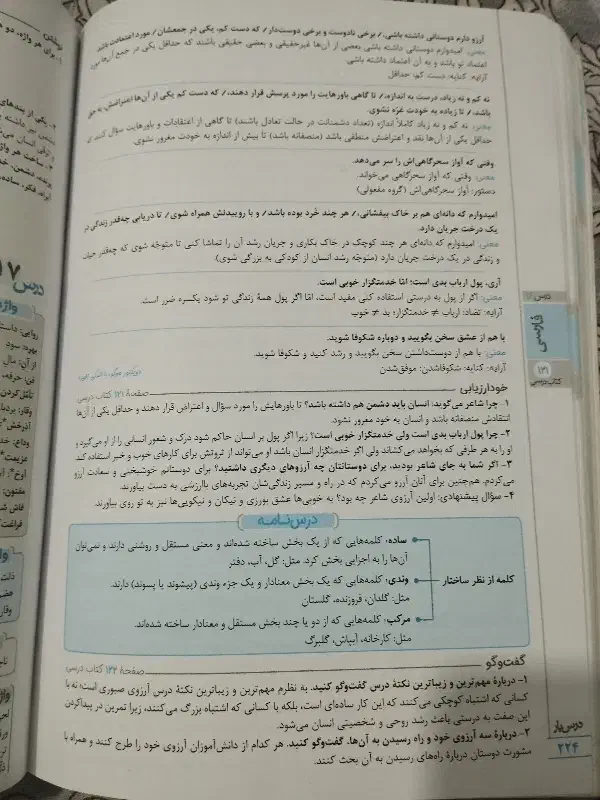 آرزو دارم دوستانی داشته باشی، / برخی نادوست و برخی دوست‌دار / که دست کم، یکی در جمعشان / مورد اعتمادت باشد
معنی: امیدوارم دوستانی داشته باشی بعضی از آن‌ها غیرحقیقی و بعضی حقیقی باشند که حداقل یکی در جمع آن‌ها مورد
اعتماد تو باشد و به آن اعتماد داشته باشی
آرایه: کنایه: دست کم: حداقل
نه کم و نه زیاد، درست به اندازه، / تا گاهی باورهایت را مورد پرسش قرار دهند، / که دست کم یکی از آن‌ها اعتراضش به حق
باشد، / تا زیاده به خودت غرّه نشوی.
معنی: نه کم و نه زیاد کاملاً اندازه (تعداد دشمنانت در حالت تعادل باشند) تا گاهی از اعتقادات و باورهایت سؤال کنند
حداقل یکی از آن‌ها نقد و اعتراضش منطقی باشد (منصفانه باشد) تا بیش از اندازه به خودت مغرور نشوی.
وقتی که آواز سحرگاهی‌اش را سر می‌دهد.
معنی: وقتی که آواز سحرگاهی‌اش می‌خواند.
دستور: آواز سحرگاهی‌اش (گروه مفعولی)
امیدوارم که دانه‌ای هم بر خاک بیفشانی، / هر چند خُرد بوده باشد / و با روییدنش همراه شوی / تا دریابی چه‌قدر زندگی در
یک درخت جریان دارد.
معنی: امیدوارم که دانه‌ای هر چند کوچک در خاک بکاری و جریان رشد آن را تماشا کنی تا متوجّه شوی که چه‌قدر حیات
و زندگی در یک درخت جریان دارد (متوجّه رشد انسان از کودکی به بزرگی شوی).
آری، پول ارباب بدی است؛ امّا خدمتگزار خوبی است.
معنی: اگر از پول به درستی استفاده کنی مفید است، امّا اگر پول همهٔ زندگی تو شود یکسره ضرر است.
آرایه: تضاد: ارباب ≠ خدمتگزار؛ بد ≠ خوب
با هم از عشق سخن بگویید و دوباره شکوفا شوید.
معنی: با هم از دوست‌داشتن سخن بگویید و رشد کنید و شکوفا شوید.
آرایه: کنایه: شکوفاشدن: موفق‌شدن
خودارزیابی
صفحهٔ ۱۲۱ کتاب درسی
۱- چرا شاعر می‌گوید: انسان باید دشمن هم داشته باشد؟ تا باورهایش را مورد سؤال و اعتراض قرار دهند و حداقل یکی از آن‌ها
انتقادش منصفانه باشد و انسان به خود مغرور نشود.
۲- چرا پول ارباب بدی است ولی خدمتگزار خوبی است؟ زیرا اگر پول بر انسان حاکم شود درک و شعور انسانی را از او می‌گیرد و
او را به هر طرفی که بخواهد می‌کشاند ولی اگر خدمتگزار انسان باشد او می‌تواند از ثروتش برای کارهای خوب و خیر استفاده کند.
۳- اگر شما به جای شاعر بودید، برای دوستانتان چه آرزوهای دیگری داشتید؟ برای دوستانم خوشبختی و سعادت آرزو
می‌کردم. هم‌چنین برای آنان آرزو می‌کردم که در راه و مسیر زندگی‌شان تجربه‌های باارزشی به دست بیاورند.
۴- سؤال پیشنهادی: اولین آرزوی شاعر چه بود؟ به خوبی‌ها عشق بورزی و نیکان و نیکویی‌ها نیز به تو روی بیاورند.
درس‌نامه
کلمه از نظر ساختار
ساده: کلمه‌هایی که از یک بخش ساخته شده‌اند و معنی مستقل و روشنی دارند و نمی‌توان
آن‌ها را به اجزایی بخش کرد. مثل: گل، آب، دفتر
وندی: کلمه‌هایی که یک بخش معنادار و یک جزء وندی (پیشوند یا پسوند) دارند.
مثل: گلدان، فروزنده، گلستان
مرکب: کلمه‌هایی که از دو یا چند بخش مستقل و معنادار ساخته شده‌اند.
مثل: کارخانه، آبپاش، گلبرگ
گفت‌وگو
صفحهٔ ۱۲۲ کتاب درسی
۱- دربارهٔ مهم‌ترین و زیباترین نکتهٔ درس گفت‌وگو کنید. به نظرم مهم‌ترین و زیباترین نکتهٔ درس آرزوی صبوری است؛ نه با
کسانی که اشتباه کوچکی می‌کنند که این کار ساده‌ای است، بلکه با کسانی که اشتباه بزرگ می‌کنند، زیرا تمرین در پیداکردن
این صفت به درستی باعث رشد روحی و شخصیتی انسان می‌شود.
۲- دربارهٔ سه آرزوی خود و راه رسیدن به آن‌ها، گفت‌وگو کنید. هر کدام از دانش‌آموزان آرزوی خود را طرح کنند و همراه با
مشورت دوستان دربارهٔ راه‌های رسیدن به آن بحث کنند.
درس ۱۷
فارسی
۱۲۱
کتاب درسی
درس‌یار
۲۲۴